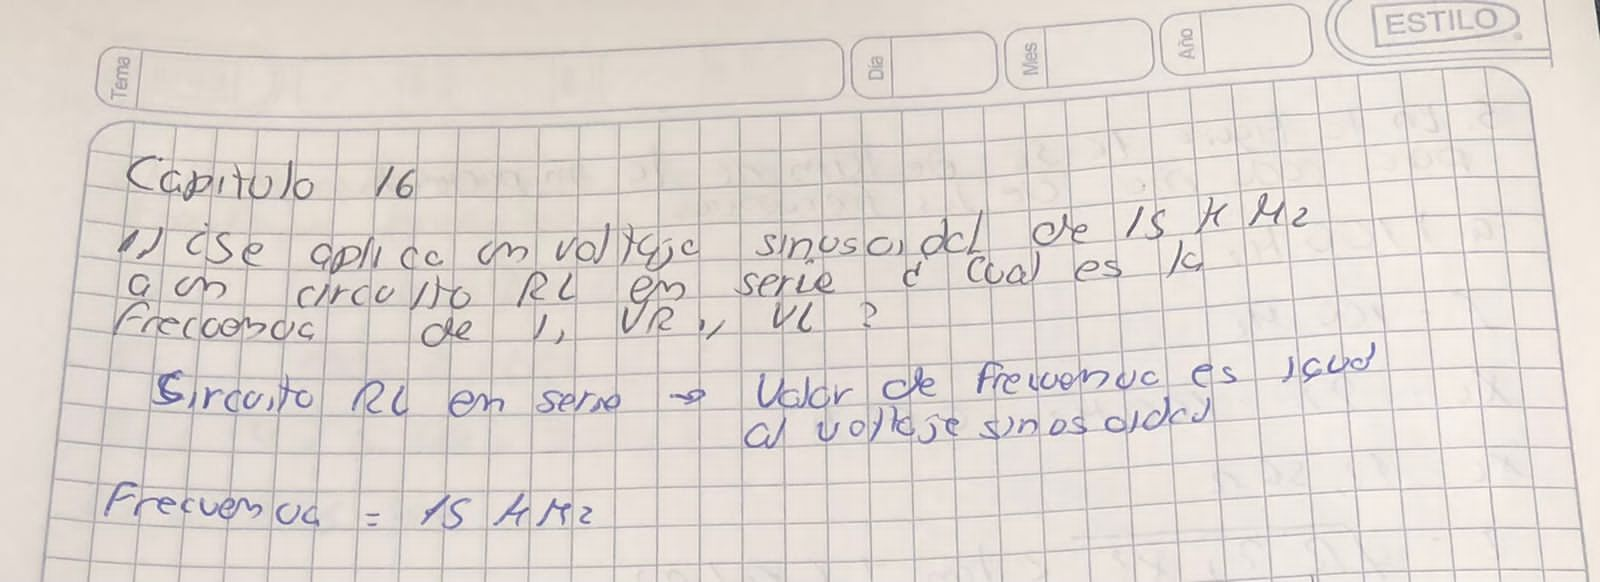 Tema
Día
Mes
Año
ESTILO
Capitulo 16
1) ¿Se aplica un voltaje sinusoidal de 15 KHz
a un circuito RL en serie ¿ Cual es la
Frecuencia de I, VR, VL ?
Sircuito RL en serie → Valor de frecuencia es igual
al voltaje sinosoidal
Frecuencia = 15 KHz